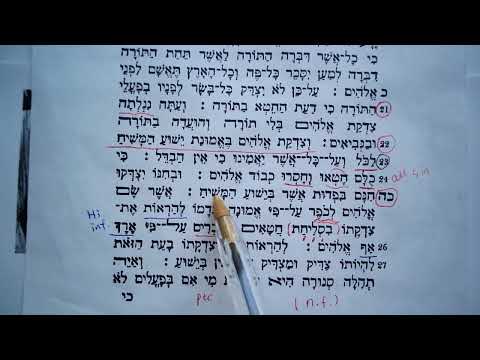 כִּי כָל־אֲשֶׁר דִּבְּרָה הַתּוֹרָה לַאֲשֶׁר תַּחַת הַתּוֹרָה
דִּבְּרָה לְמַעַן יִסָּכֵר כָּל־פֶּה וְכָל־הָאָרֶץ תֶּאְשַׁם לִפְנֵי
כ אֱלֹהִים : עַל־כֵּן לֹא יִצְדַּק כָּל־בָּשָׂר לְפָנָיו בְּפָעֳלֵי
21 הַתּוֹרָה כִּי דַעַת הַחֵטְא בַּתּוֹרָה : וְעַתָּה נִגְלְתָה
צִדְקַת אֱלֹהִים בְּלִי תוֹרָה וְהוּעֲדָה בַתּוֹרָה
22 וּבַנְּבִיאִים : וְצִדְקַת אֱלֹהִים בֶּאֱמוּנַת יֵשׁוּעַ הַמָּשִׁיחַ
23 לַכֹּל וְעַל־כָּל־אֲשֶׁר יַאֲמִינוּ כִּי אֵין הַבְדֵּל : כִּי
24 כֻּלָּם חָטְאוּ וְחָסְרוּ כְּבוֹד אֱלֹהִים : וּבְחִנּוֹ יִצְדָּקוּ
כה חִנָּם בִּפְדוּת אֲשֶׁר בְּיֵשׁוּעַ הַמָּשִׁיחַ : אֲשֶׁר שָׂם
Hi אֱלֹהִים לְכֹפֶר עַל־פִּי דָמוֹ לְהַרְאוֹת אֶת־
inf. צִדְקָתוֹ (בִּסְלִיחַת) חֲטָאִים עַל־פִּי אֹרֶךְ
26 אַף אֱלֹהִים : לְהַרְאוֹת צִדְקָתוֹ בָּעֵת הַזֹּאת
27 לִהְיוֹתוֹ צַדִּיק וּמַצְדִּיק בְּיֵשׁוּעַ : וְאַיֵּה
תְהִלָּה סְגוּרָה הִיא מִי אִם בַּפְּעָלִים לֹא
ptc (n.f.) כִּי